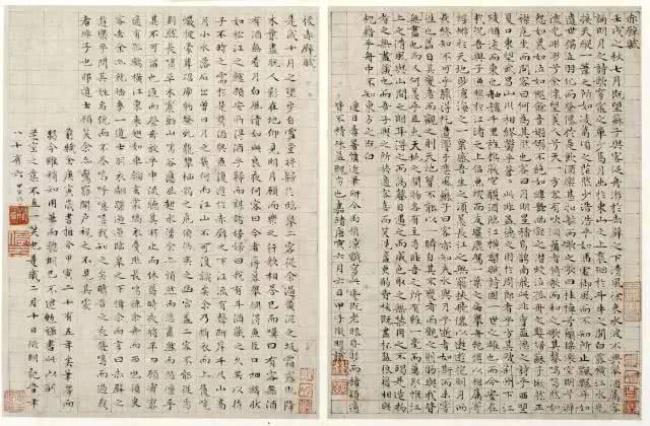 赤壁賦
壬戌之秋七月既望蘇子與客泛舟遊於赤壁之下清風徐來水波不興舉酒屬客
誦明月之詩歌窈窕之章少焉月出於東山之上裴回於斗牛之間白露橫江水光
接天縱一葦之所如凌萬頃之茫然浩浩乎如馮虛御風而不知所止飄飄乎如
遺世獨立羽化而登僊於是飲酒樂甚扣舷而歌之歌曰桂棹兮蘭槳擊空明兮泝
流光渺渺兮余懷望美人兮天一方客有吹洞簫者倚歌而和之其聲嗚嗚然如
怨如慕如泣如訴餘音嫋嫋不絕如縷舞幽壑之潛蛟泣孤舟之嫠婦蘇子愀然正
襟危坐而問客曰何為其然也客曰月明星稀烏鵲南飛此非曹孟德之詩乎西望
夏口東望武昌山川相繆鬱乎蒼蒼此非孟德之困於周郎者乎方其破荊州下江
陵順流而東也舳艫千里旌旗蔽空釃酒臨江橫槊賦詩固一世之雄也而今安在
哉況吾與子漁樵於江渚之上侶魚蝦而友麋鹿駕一葉之扁舟舉匏樽以相屬寄
蜉蝣於天地渺滄海之一粟哀吾生之須臾羨長江之無窮挾飛僊以遨遊抱明月而
長終知不可乎驟得託遺響於悲風蘇子曰客亦知夫水與月乎逝者如斯而未嘗
往也盈虛者如彼而自其變者而觀之則天地曾不能以一瞬自其不變者而觀之則物與我皆
無盡也而又何羨乎且夫天地之間物各有主苟非吾之所有雖一毫而莫取惟江
上之清風與山間之明月耳得之而為聲目遇之而成色取之無禁用之不竭是造物
者之無盡藏也而吾與子之所共食客喜而笑洗盞更酌肴核既盡杯盤狼籍相與
枕藉乎舟中不知東方之既白
連日毒暑
嘉靖庚寅六月六日甲子徵明識
後赤壁賦
是歲十月之望步自雪堂將歸于臨皋二客從余過黃泥之坂霜露既降
木葉盡脫人影在地仰見明月顧而樂之行歌相答已而嘆曰有客無酒
有酒無肴月白風清如此良夜何客曰今者薄暮舉網得魚巨口細鱗狀
如松江之鱸顧安所得酒乎歸而謀諸婦婦曰我有斗酒藏之久矣以待
子不時之需於是攜酒與魚復遊於赤壁之下江流有聲斷岸千尺山高
月小水落石出曾日月之幾何而江山不可復識矣余乃攝衣而上履巉
巖披蒙茸踞虎豹登虬龍攀栖鶻之危巢俯馮夷之幽宮蓋二客不能從焉
劃然長嘯草木震動山鳴谷應風起水湧余亦悄然而悲肅然而恐凜乎
其不可留也返而登舟放乎中流聽其所止而休焉時夜將半四顧寂寥
適有孤鶴橫江東來翅如車輪玄裳縞衣戛然長鳴掠余舟而西也須臾
客去余亦就睡夢一道士羽衣翩躚過臨皋之下揖余而言曰赤壁之
遊樂乎問其姓名俛而不答嗚呼噫嘻我知之矣疇昔之夜飛鳴而過我
者非子也耶道士顧笑余亦驚寤開戶視之不見其處
庚寅歲書抵今甲寅二十有五年矣
一笑也是歲二月十日徵明記當年
八十有六